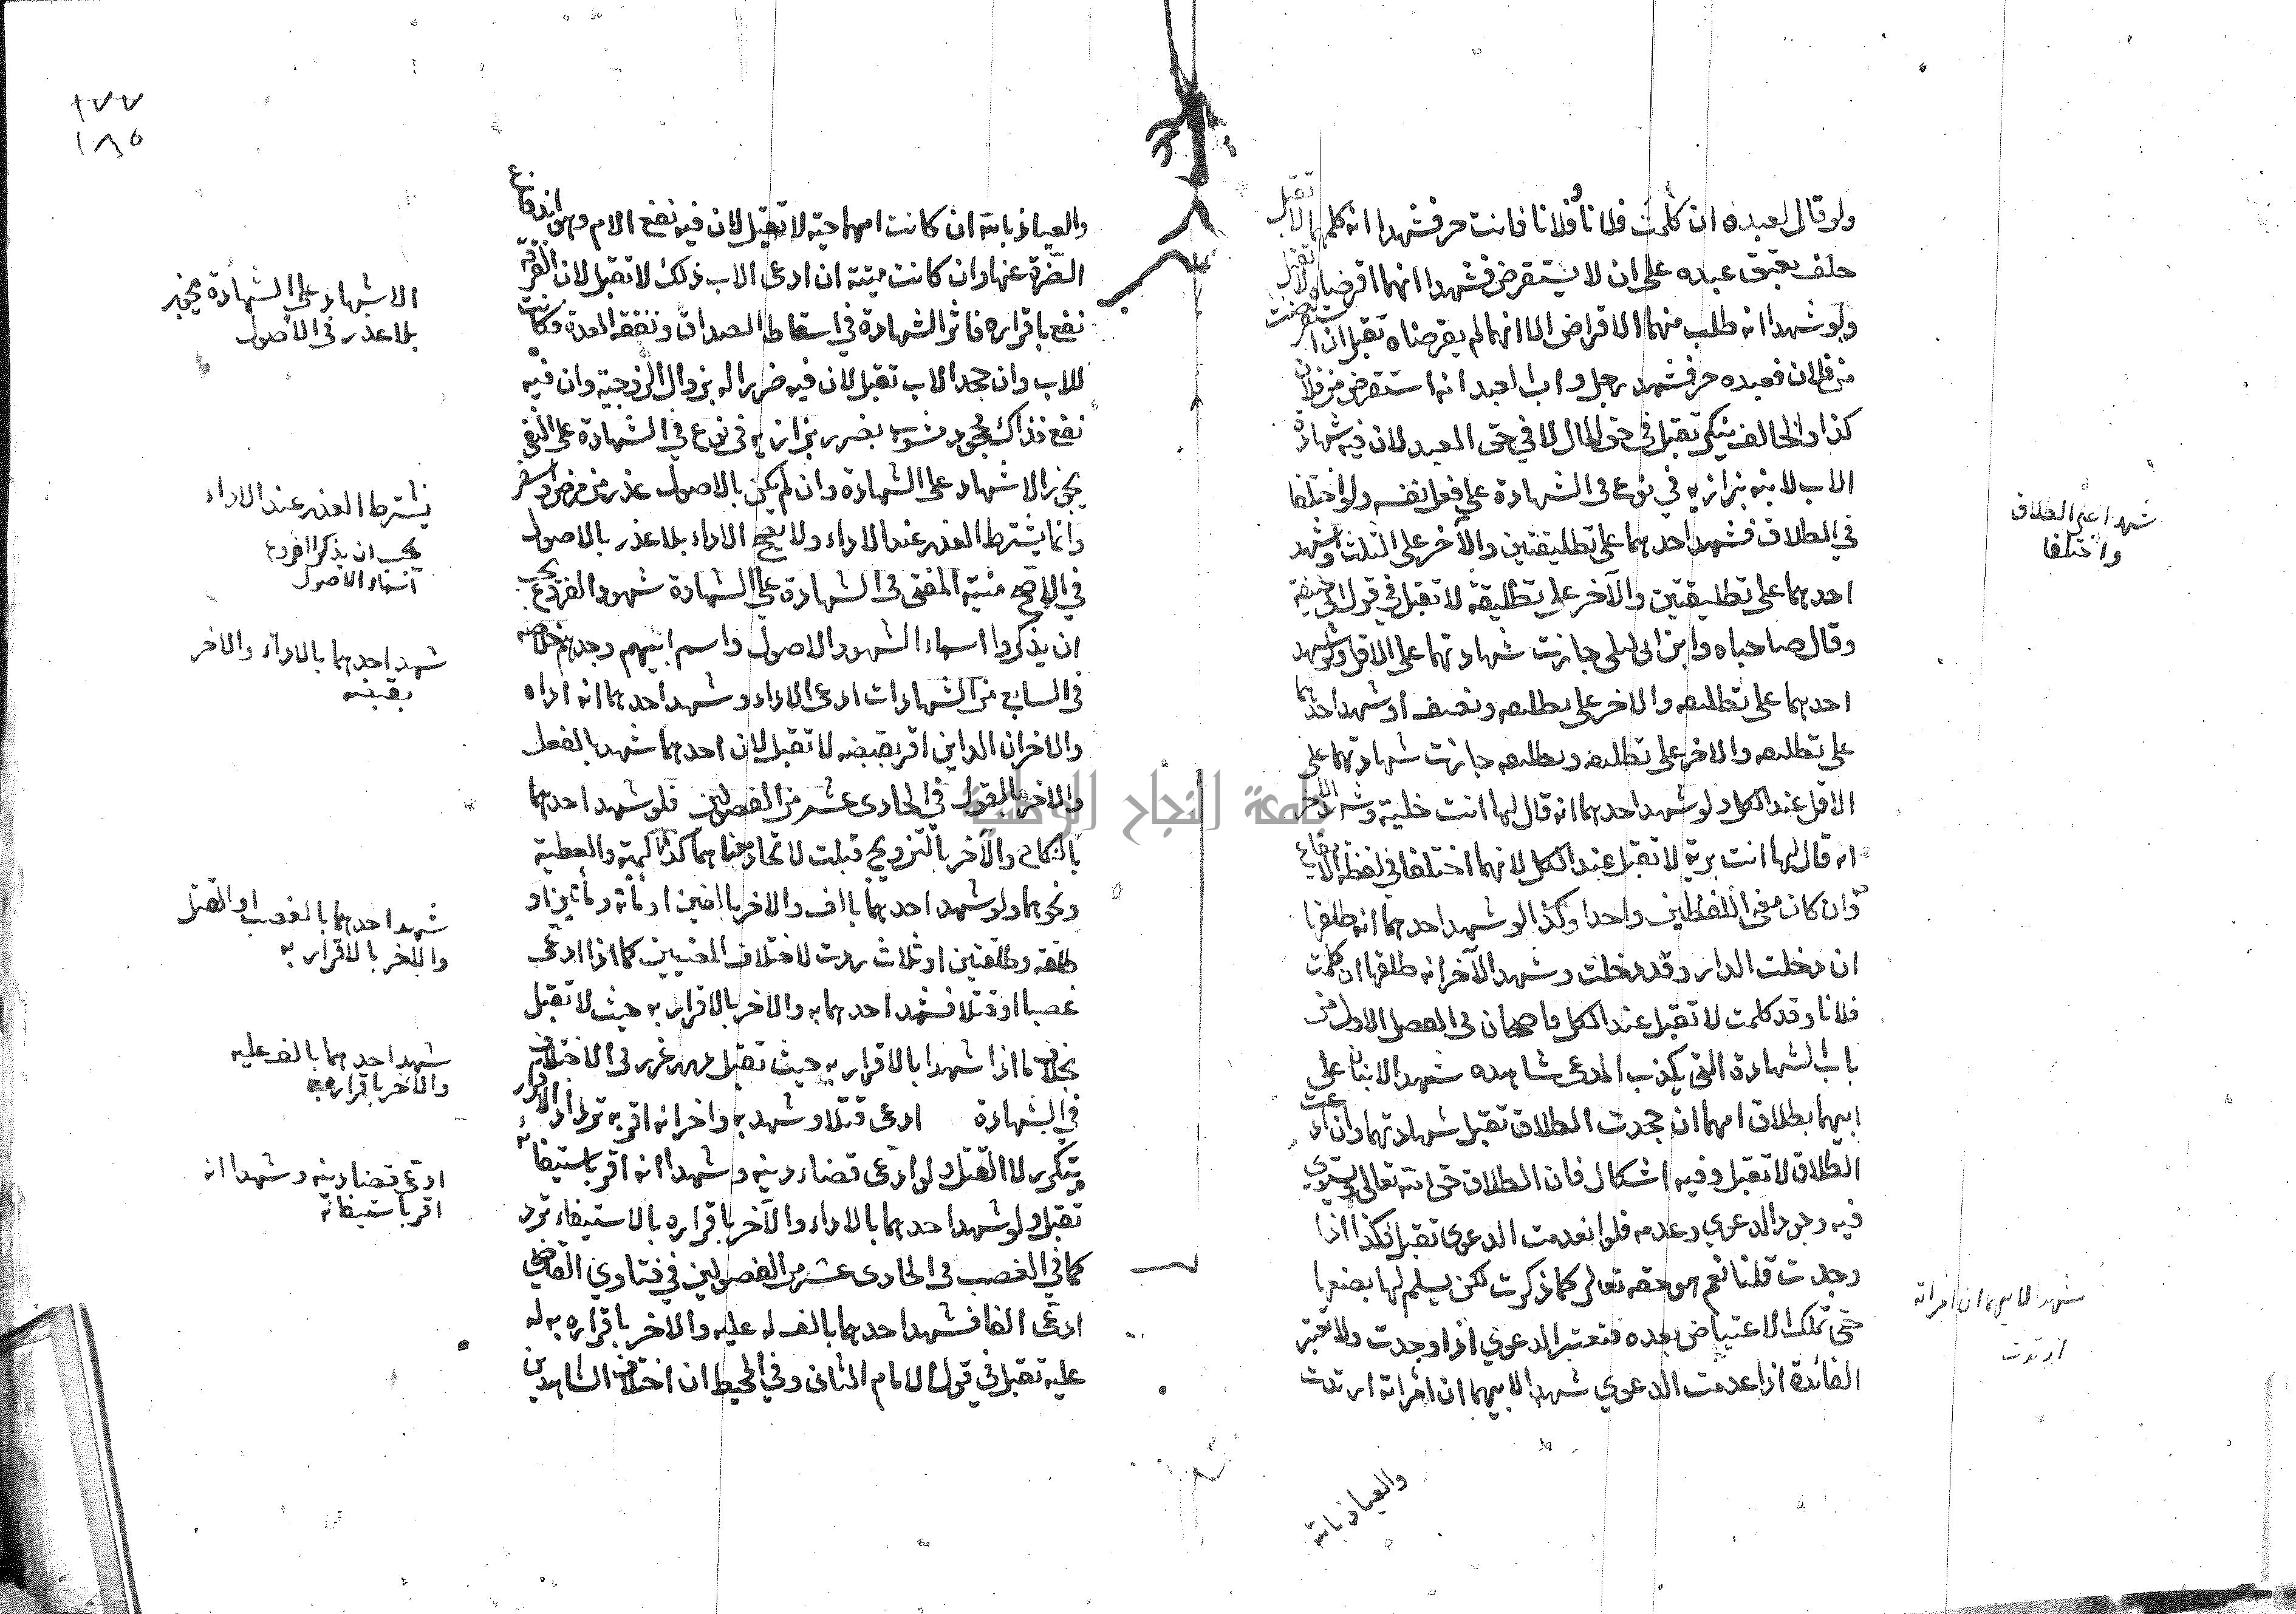 ولو قال لعبده ان كلمت فلانا وفلانا فانت حر فشهدا انه كلمهما لا تقبل
حلف بعتق عبده على ان لا يستقرض فشهدا انهما اقرضاه لا تقبل
ولو شهدا انه طلب منهما الاقراض الا انهما لم يقرضاه تقبل ان استقرضت
من فلان فعبده حر فشهد رجل واب العبد انه استقرض من فلان
كذا والحالف ينكر تقبل في حق المال لا في حق العبد لان فيه شهادة
الاب لابنه بزازيه في نوع في الشهادة على فعل نفسه ولو اختلفا
في الطلاق فشهد احدهما على تطليقتين والآخر على الثلث او شهد
احدهما على تطليقتين والآخر على تطليقة لا تقبل في قول ابي حنيفة
وقال صاحباه وابن ابي ليلى جازت شهادتهما على الاقل ولو شهد
احدهما على تطليقه والاخر على تطليقه ونصف او شهد احدهما
على تطليقه والاخر على تطليقه وتطليقه جازت شهادتهما على
الاقل عند الكل ولو شهد احدهما انه قال لها انت خلية وشهد الآخر
انه قال لها انت برية لا تقبل عند الكل لانهما اختلفا في لفظة الايقاع
وان كان معنى اللفظين واحدا وكذا لو شهد احدهما انه طلقها
ان دخلت الدار وقد دخلت وشهد الآخر انه طلقها ان كلمت
فلانا وقد كلمت لا تقبل عند الكل قاضيخان في الفصل الاول من
باب الشهادة التي يكذب المدعى شاهده شهد الابنان على
ابيهما بطلاق امهما ان جحدت الطلاق تقبل شهادتهما وان ادعت
الطلاق لا تقبل وفيه اشكال فان الطلاق حق الله تعالى ويستوي
فيه وجود الدعوي وعدمه فلو انعدمت الدعوى تقبل فكذا اذا
وجدت قلنا نعم هو حقه تعالى كما ذكرت لكن يسلم لها بضعها
حتى تملك الاعتياض بعده فتعتبر الدعوي اذا وجدت ولا تعتبر
الفائدة اذا عدمت الدعوي شهدا لابيهما ان امراته ارتدت
والعياذ بالله
شهدا على الطلاق
واختلفا
شهدا لابيهما ان امراته
ارتدت
١٧٧
١٨٥
والعياذ بالله ان كانت امهما حية لا تقبل لان فيه نفع الام وهو اندفاع
الضرة عنها وان كانت ميتة ان ادعى الاب ذلك لا تقبل لان الفرقة
تقع باقراره فاثر الشهادة في اسقاط الصداق ونفقة العدة وكانت
للاب وان جحد الاب تقبل لان فيه ضررا له بزوال الزوجية وان فيه
نفع فذاك مجحود مشوب بضرر بزازيه في نوع في الشهادة على النفي
يجوز الاشهاد على الشهادة وان لم يكن بالاصول عذر من مرض او سفر
وانما يشترط العذر عند الاداء ولا يصح الاداء بلا عذر بالاصول
في الاصح منية المفتي في الشهادة على الشهادة شهود الفروع يجب
ان يذكروا اسماء الشهود الاصول واسم ابيهم وجدهم خلاصه
في السابع من الشهادات ادعى الاداء وشهد احدهما انه اداه
والاخر ان الداين اقر بقبضه لا تقبل لان احدهما شهد بالفعل
والاخر بالقول في الحادى عشر من الفصولين فلو شهد احدهما
بالنكاح والآخر بالتزويج قبلت لاتحاد معناهما كذا الهبة والعطية
ونحوهما ولو شهد احدهما بالف والاخر بالفين او مائة ومأتين او
طلقه وطلقتين او ثلاث ردت لاختلاف المعنيين كما اذا ادعى
غصبا او قتلا فشهد احدهما به والاخر بالاقرار به حيث لا تقبل
بخلاف ما اذا شهدا بالاقرار به حيث تقبل درر غرر في الاختلاف
في الشهادة ادعى قتلا وشهد به واخر انه اقر به ترد اذ الاقرار
يتكرر لا القتل ولو ادعى قضاء دينه وشهدا انه اقر باستيفائه
تقبل ولو شهد احدهما بالاداء والآخر باقراره بالاستيفاء ترد
كما في الغصب في الحادى عشر من الفصولين في فتاوي القاضي
ادعى الفا فشهد احدهما بالف له عليه والاخر باقراره به له
عليه تقبل في قول الامام الثانى وفي المحيط ان اختلاف الشاهدين
الاشهاد على الشهادة يجوز
بلا عذر في الاصول
يشترط العذر عند الاداء
يجب ان يذكر الفروع
اسماء الاصول
شهد احدهما بالاداء والاخر
بقبضه
شهد احدهما بالغصب او القتل
والاخر بالاقرار به
شهد احدهما بالف عليه
والاخر باقراره به
ادعى قضا دينه وشهدا انه
اقر باستيفائه
جامعة النجاح الوطنية